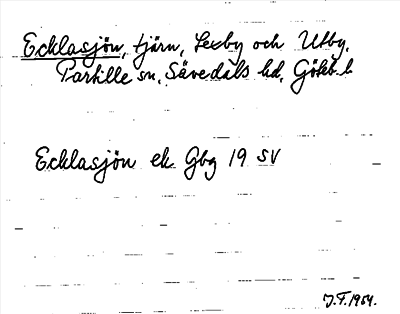 Ecklasjön, tjärn, Lexby och Utby,
Partille sn, Sävedals hd, Götеb. l.
Ecklasjön ek Gbg 19 SV
J.F. 1954.